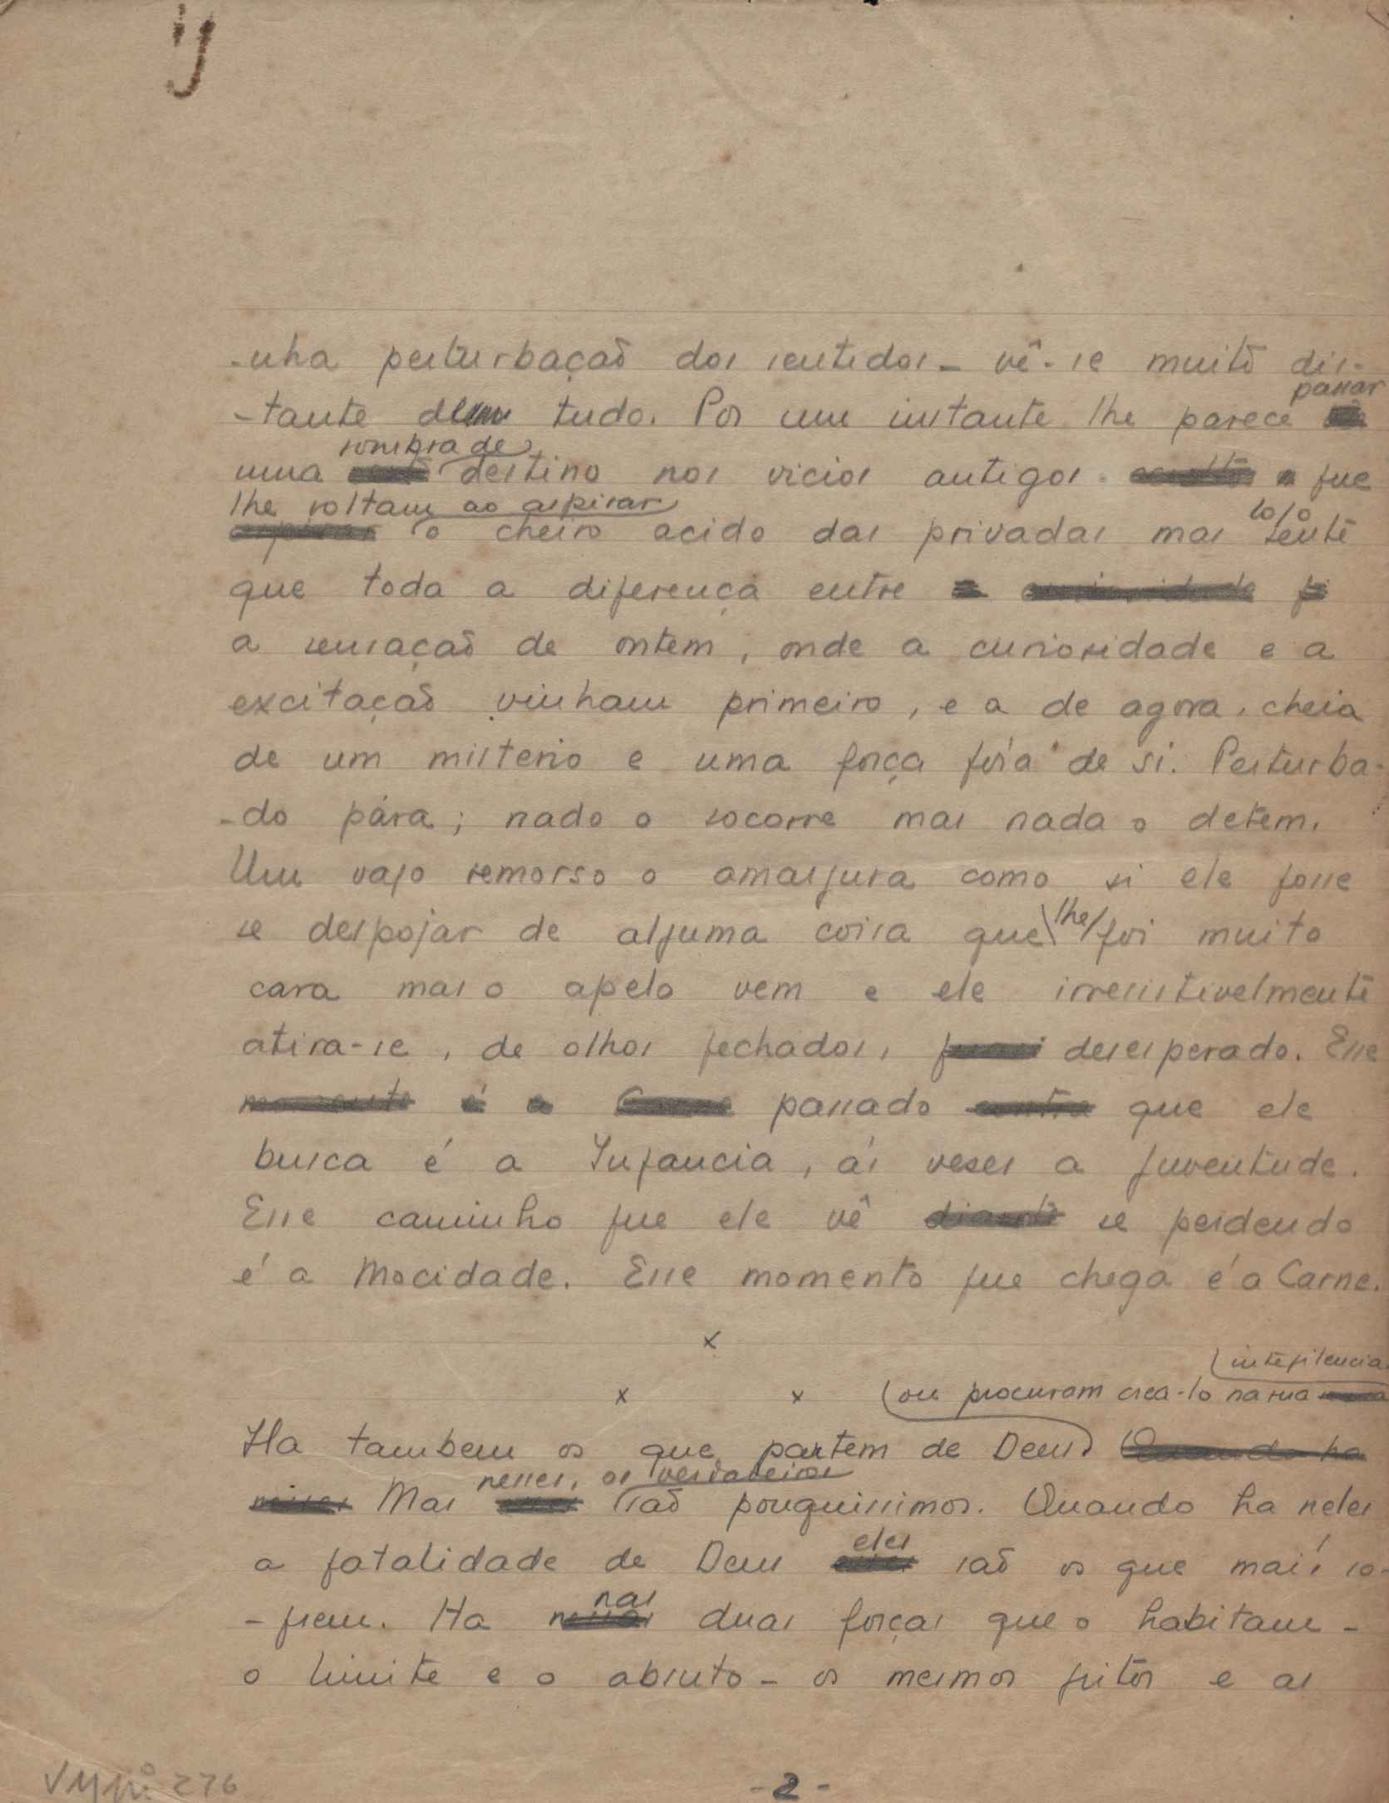 ij
-nha perturbação dos sentidos - vê-se muito dis-
passar
-tante de tudo. Por um instante lhe parece
sombra de
uma destino nos vicios antigos. que
lhe voltam ao aspirar
logo
o cheiro acido das privadas mas sente
que toda a diferença entre
a sensação de ontem, onde a curiosidade e a
excitação vinham primeiro, e a de agora, cheia
de um misterio e uma força fóra de si. Perturba-
-do pára; nado o socorre mas nada o detem.
Um vago remorso o amargura como si ele fosse
se despojar de alguma coisa que lhe foi muito
cara mas o apelo vem e ele irresistivelmente
atira-se, de olhos fechados, desesperado. Esse
momento é a Carne passado contra que ele
busca é a Infancia, ás veses a Juventude.
Esse caminho que ele vê diante se perdendo
é a Mocidade. Esse momento que chega é a Carne.
x
inteligencia
x x (ou procuram crea-lo na sua
Ha tambem os que partem de Deus) Quando ha
nesses, os verdadeiros
Mas são pouquissimos. Quando ha neles
eles
a fatalidade de Deus são os que mais so-
nas
-frem. Ha duas forças que o habitam -
o limite e o absuto - os mesmos gritos e as
VM pi: 276
- 2 -